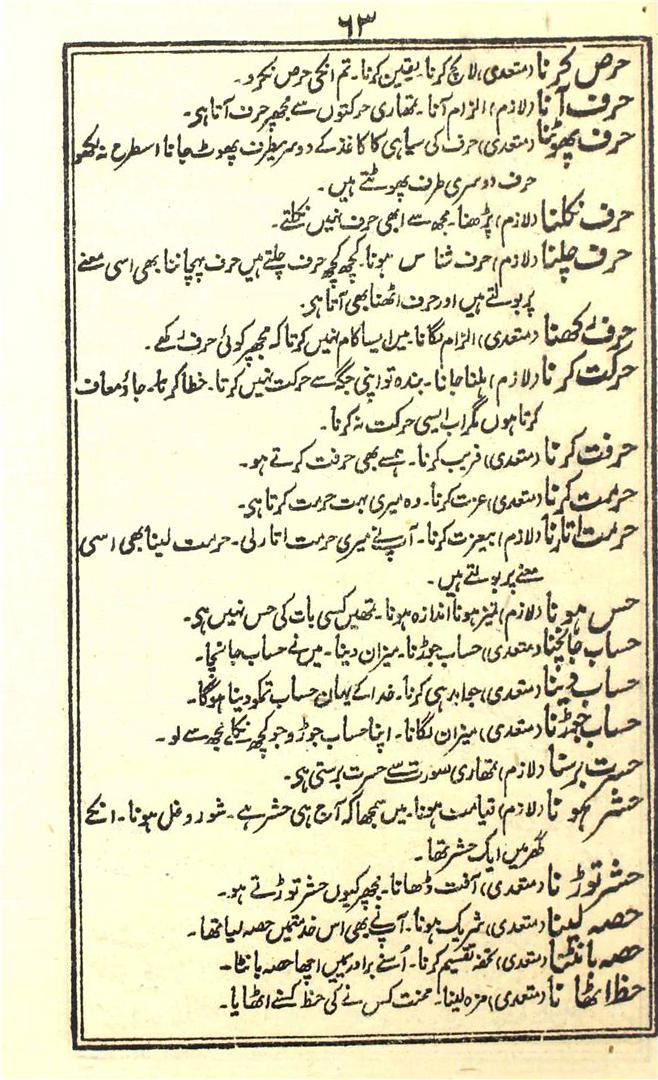 ۶۳
حرص کرنا (متعدی) لالچ کرنا۔ یقین کرنا۔ تم انکی حرص نکرو۔
حرف آنا (لازم) الزام آنا۔ تمھاری حرکتوں سے مجھپر حرف آتا ہی۔
حرف پھوٹنا (متعدی) حرف کی سیاہی کا کاغذ کے دوسریطرف پھوٹ جانا اسطرح نہ لکھو
حرف دوسری طرف پھوٹتے ہیں۔
حرف نکلنا (لازم) پڑھنا۔ مجھ سے ابھی حرف نہیں نکلتے۔
حرف چلنا (لازم) حرف شناس ہونا۔ کچھ کچھ حرف چلتے ہیں حرف پہچاننا بھی اسی معنے
پر بولتے ہیں اور حرف اٹھنا بھی آتا ہی۔
حرف رکھنا (متعدی) الزام لگانا۔ میں ایسا کام نہیں کرتا کہ مجھپر کوئی حرف رکھے۔
حرکت کرنا (لازم) ہلنا جانا۔ بندہ تو اپنی جگہ سے حرکت نہیں کرتا۔ خطا کرنا۔ جاؤ معاف
کرتا ہوں مگر اب ایسی حرکت نہ کرنا۔
حرفت کرنا (متعدی) فریب کرنا۔ ہمسے بھی حرفت کرتے ہو۔
حرمت کرنا (متعدی) عزت کرنا۔ وہ میری بہت حرمت کرتا ہی۔
حرمت اتارنا (لازم) بیعزت کرنا۔ آپ نے میری حرمت اتار لی۔ حرمت لینا بھی اسی
معنے پر بولتے ہیں۔
حس ہونا (لازم) تمیز ہونا اندازہ ہونا۔ تمھیں کسی بات کی حس نہیں ہی۔
حساب جانچنا (متعدی) حساب جوڑنا۔ میزان دینا۔ میں نے حساب جانچا۔
حساب دینا (متعدی) جوابدہی کرنا۔ خدا کے یہاں حساب تمکو دینا ہوگا۔
حساب جوڑنا (متعدی) میزان لگانا۔ اپنا حساب جوڑو جو کچھ نکلے مجھ سے لو۔
حسرت برسنا (لازم) تمھاری صورت سے حسرت برستی ہی۔
حشر ہونا (لازم) قیامت ہونا۔ میں سمجھا کہ آج ہی حشر ہے۔ شور و غل ہونا۔ انکے
گھر میں ایک حشر تھا۔
حشر توڑنا (متعدی) آفت ڈھانا۔ مجھپر کیوں حشر توڑتے ہو۔
حصہ لینا (متعدی) شریک ہونا۔ آپنے بھی اس خدمتمیں حصہ لیا تھا۔
حصہ بانٹنا (متعدی) تحفہ تقسیم کرنا۔ اُسنے برادریمیں اچھا حصہ بانٹا۔
حظ اٹھانا (متعدی) مزہ لینا۔ محنت کس نے کی حظ کسنے اٹھایا۔